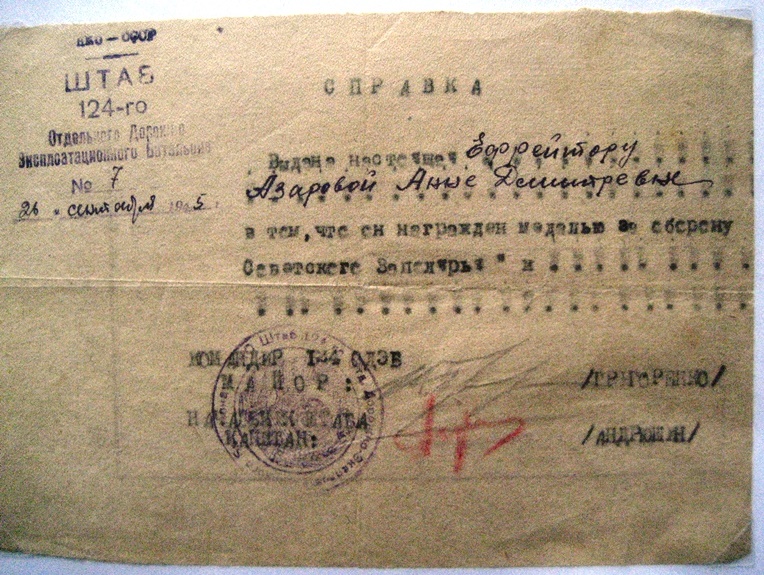 НКО — СССР
ШТАБ
124-го
Отдельного Дорожно
Эксплоатационного Батальона
№ 7
26 " сентября 1945 г.
СПРАВКА
Выдана настоящая Ефрейтору
Азаровой Анне Дмитревне
в том, что он награжден медалью за оборону
Советского Заполярья " и . . . . . . . .
КОМАНДИР 124 ОДЭБ
МАЙОР: /ГРИГОРЕНКО/
НАЧАЛЬНИК ШТАБА
КАПИТАН: /АНДРЮШИН/